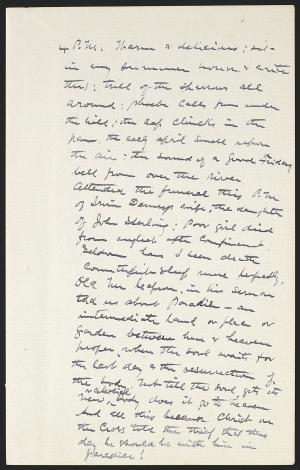 4 P.M. Warm & delicious; sit
in my summer house & write
this; trill of the sparrows all
around; phoebe calls from under
the hill; the sap clinks in the
pans, the early april smell upon
the air; the sound of a Good Friday
bell from over the river
Attended the funeral this P.M.
of wife, the daughter
of John Sterling; Poor girl died
from neglect after confinement.
Seldom have I seen death
counterfeit sleep more perfectly.
Old Mr in his sermon
told us about Paradise - an
intermediate land or place or
garden between here & heaven
proper, where the soul waits for
the last day & the resurrection of
the body, not till the soul gets its
new, body does it go to heaven
And all this because Christ on
the Cross told the thief that this
day he should be with him in
Paradise!